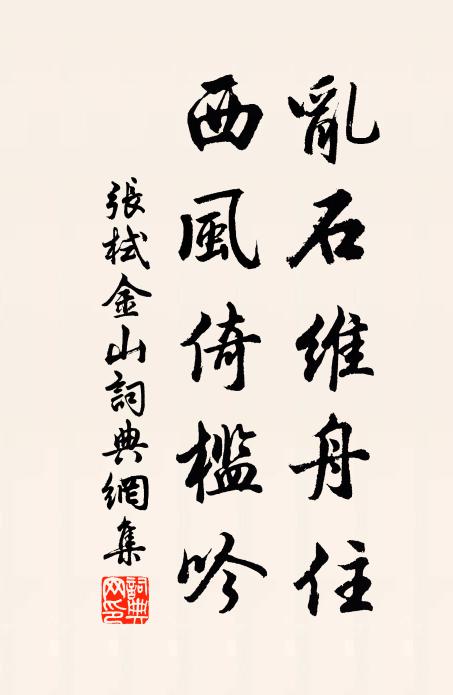 亂石維舟住
西風倚檻吟
張栻金山詞典網集
詞典網印